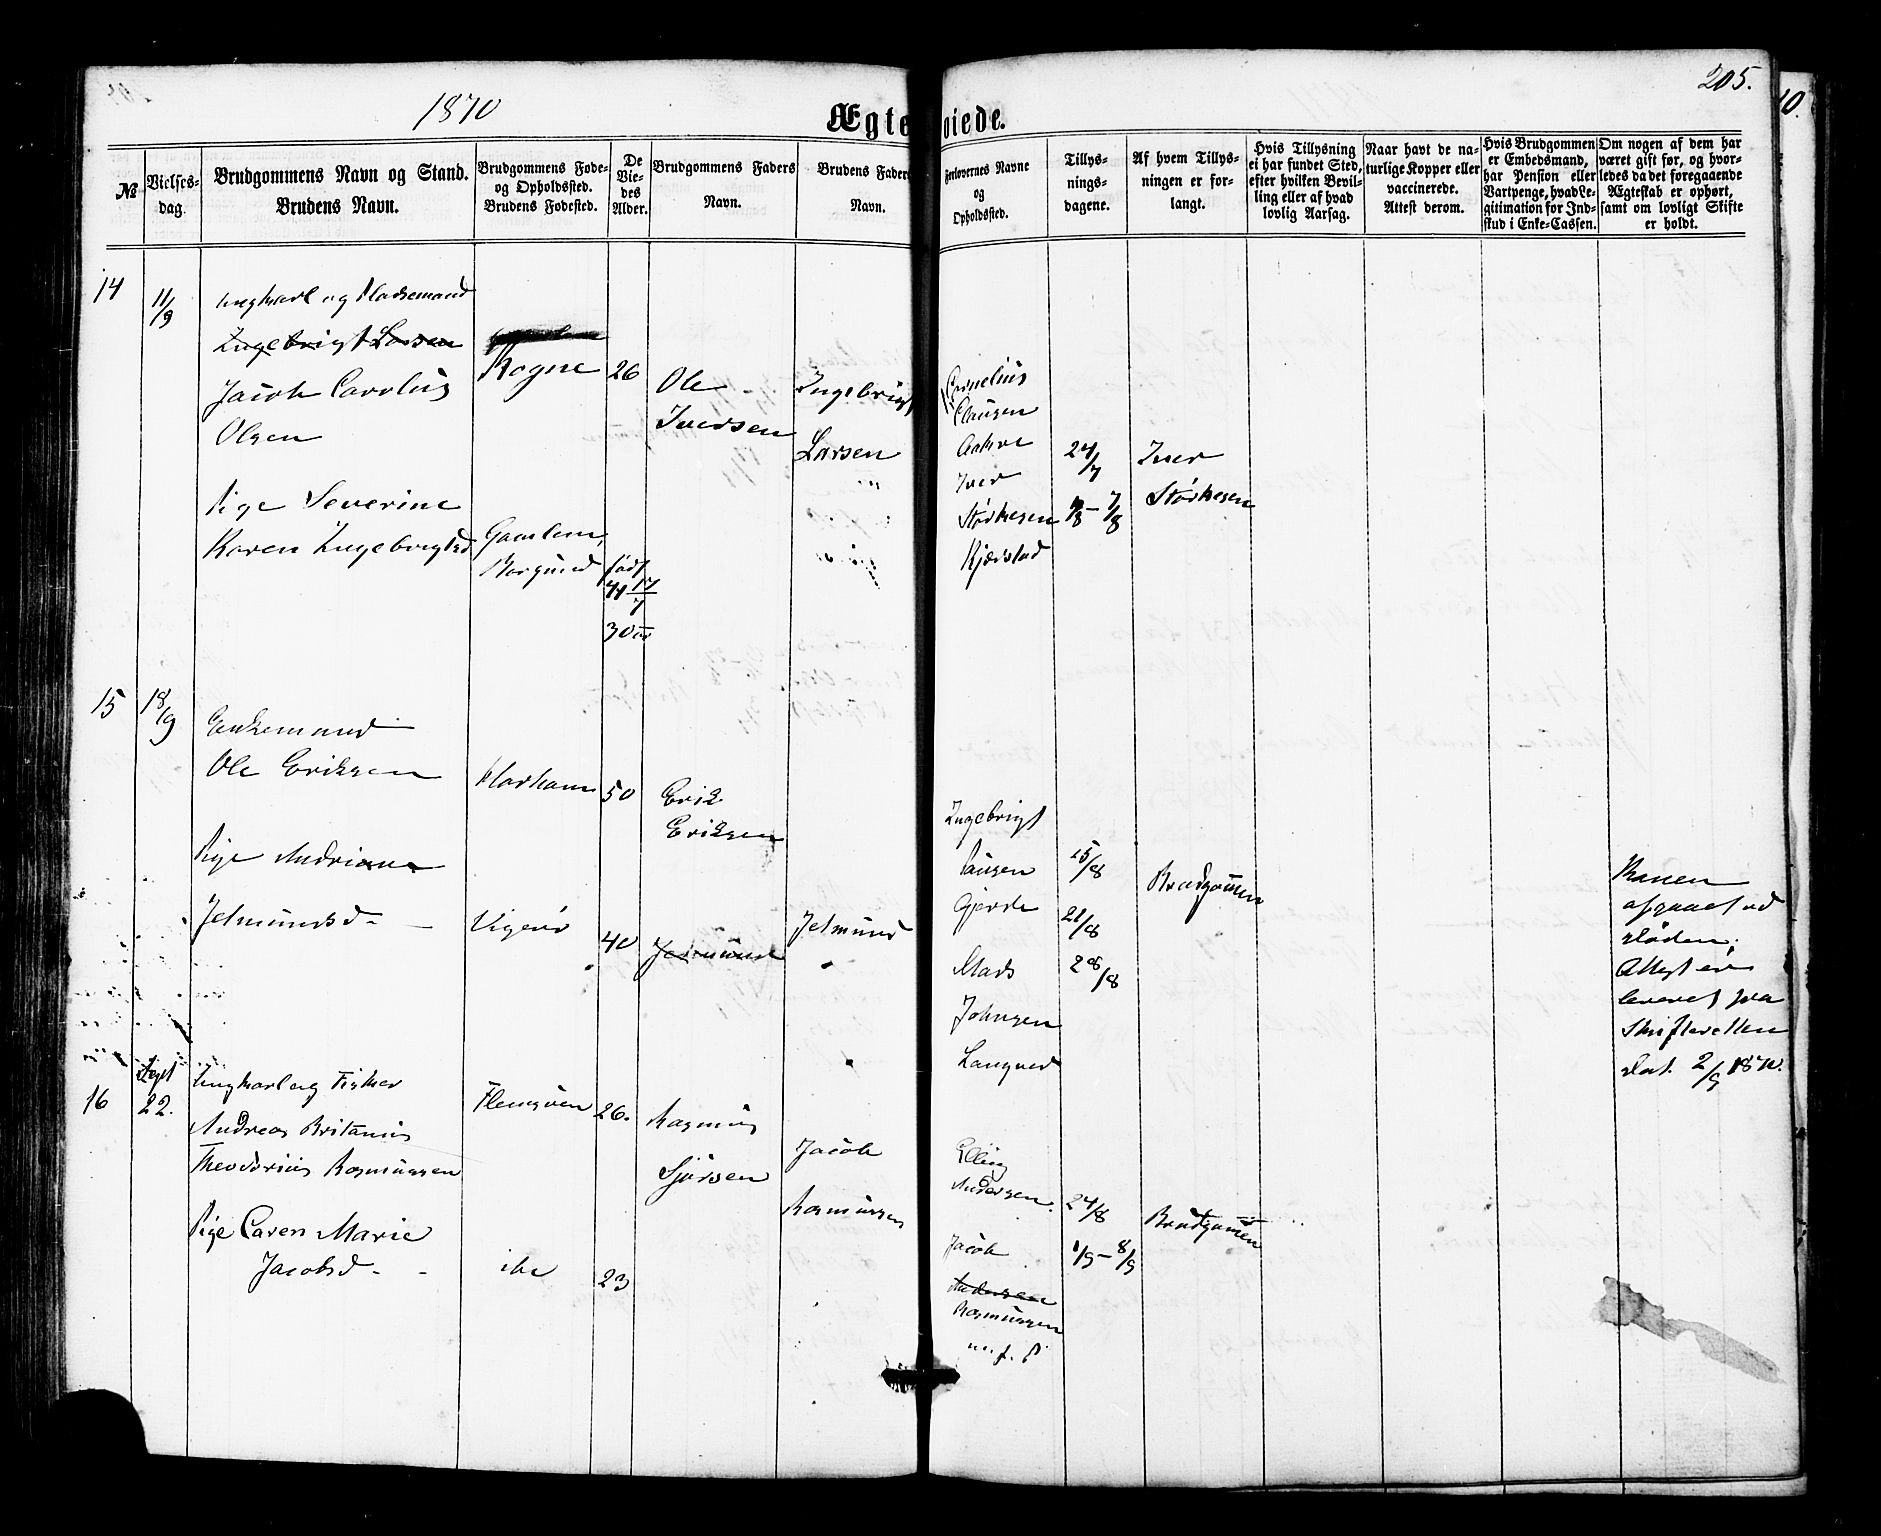 1870
205.
Ægteviede.
№
Vielses-
dag.
Brudgommens Navn og Stand.
Brudens Navn.
Brudgommens Føde-
og Opholdssted.
Brudens Fødested.
De
Vie-
des
Alder.
Brudgommens Faders
Navn.
Brudens Faders
Navn.
Forlovernes Navne
og
Opholdssted.
Tillys-
nings-
dagene.
Af hvem Tillys-
ningen er for-
langt.
Hvis Tillysning
ei har fundet Sted,
efter hvilken Bevil-
ling eller af hvad
lovlig Aarsag.
Naar havt de na-
turlige Kopper eller
vaccinerede.
Attest derom.
Hvis Brudgommen
er Embedsmand,
har Pension eller
Vartpenge, hvad Le-
gitimation for Ind-
skud i Enke-Cassen.
Om nogen af dem har
været gift før, og hvor-
ledes da det foregaaende
Ægteskab er ophørt,
samt om lovligt Skifte
er holdt.
14
11/9
ungkarl og
Ingebrigt Larsen
Jacob Carolus
Olsen
Pige Severine
Karen Ingebrigtsd
Rogne
Gamlem,
Borgund
26
født
17/7
30
Ole
Iversen
Ingebrigt
Larsen
Cornelius
Clausen
Aakre
Iver
Størkesen
Kjærstad
24/7
7/8
Iver
Størkesen
15
18/9
Enkemand
Ole Eriksen
Pige Andriane
Jetmundsd
Harham
Vigerø
50
40
Erik
Eriksen
Jetmund
Jetmund
Ingebrigt
Gjerde
Mads
Johnsen
Langved
15/8
21/8
28/8
Brudgommen
Konen
afgaaet ved
døden;
Attest er
leveret fra
Skifteretten
dat. 2/9 1870.
16
Sept
22.
Ungkarl og Fisker
Andreas Britanus
Theodorius Rasmussen
Pige Caren Marie
Jacobsd
Flemsøen
ibd
26.
23
Rasmus
Sjursen
Jacob
Rasmussen
Elling
Andersen
Jacob
Andersen
Rasmussen
24/8
1/9 - 8/9
Brudgommen